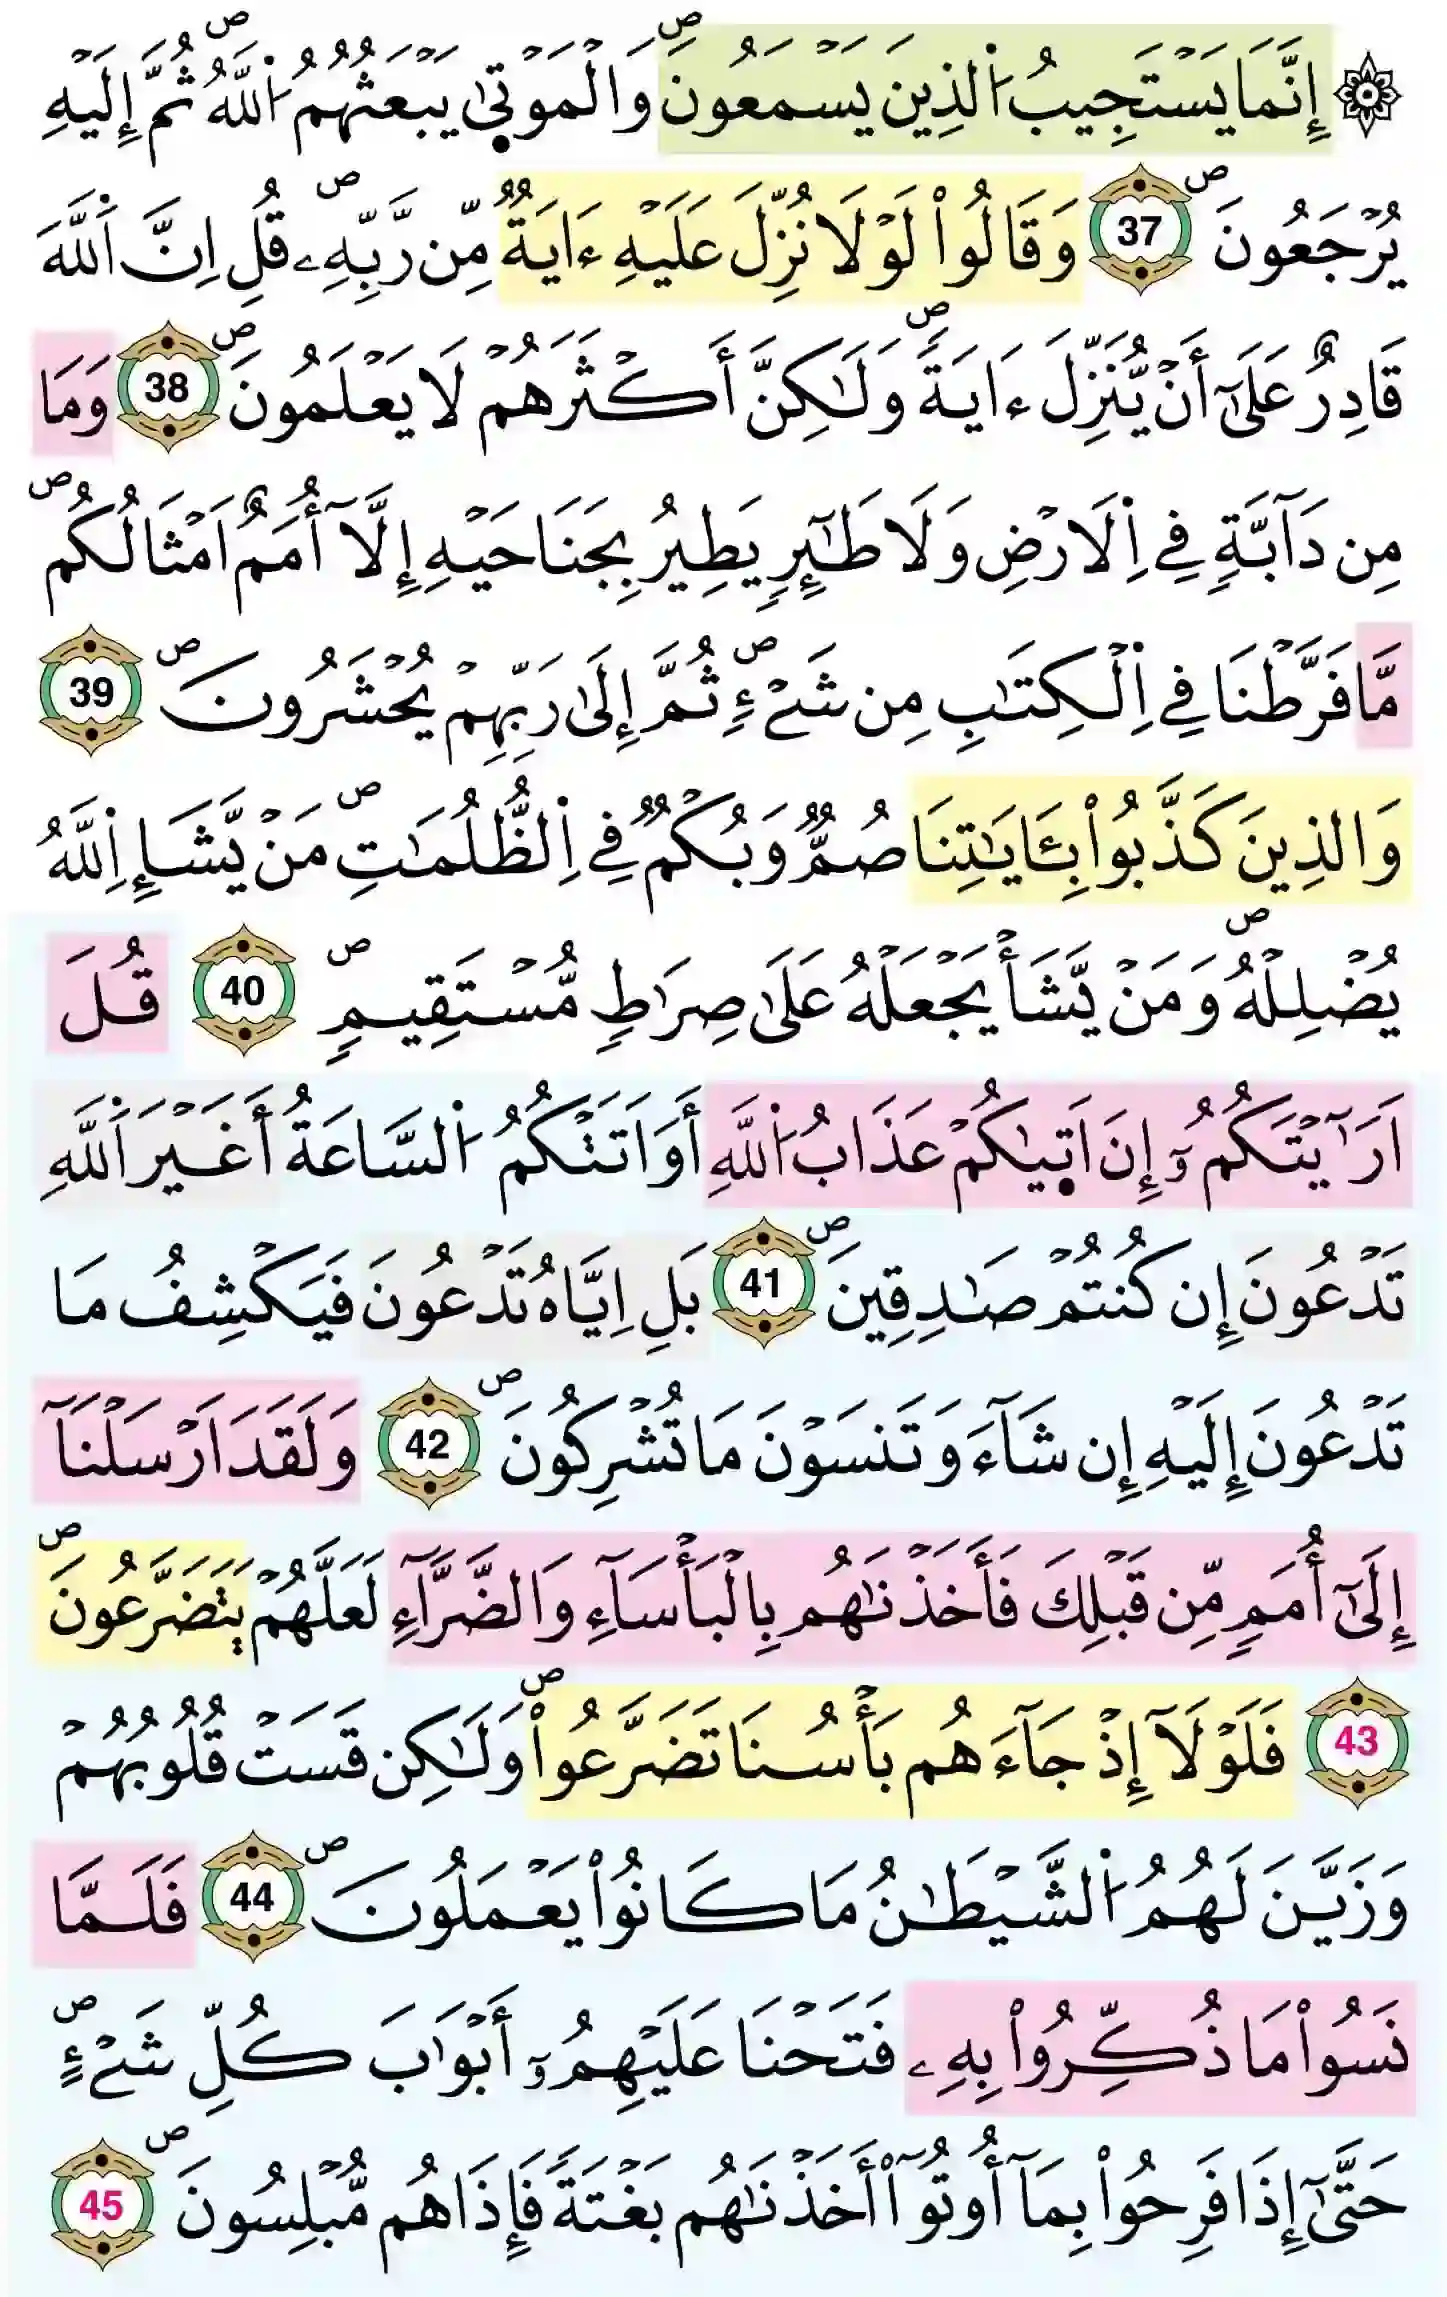 ۞ إِنَّمَا يَسْتَجِيبُ اَ۬لذِينَ يَسْمَعُونَۖ وَالْمَوْت۪يٰ يَبْعَثُهُمُ اُ۬للَّهُۖ ثُمَّ إِلَيْهِ
يُرْجَعُونَۖ 37 وَقَالُواْ لَوْلَا نُزِّلَ عَلَيْهِ ءَايَةٞ مِّن رَّبِّهِۦۖ قُلِ اِنَّ اَ۬للَّهَ
قَادِرٌ عَلَىٰٓ أَنْ يُّنَزِّلَ ءَايَةٗۖ وَلَٰكِنَّ أَكْثَرَهُمْ لَا يَعْلَمُونَۖ 38 وَمَا
مِن دَآبَّةٖ فِي اِ۬لَارْضِ وَلَا طَٰٓئِرٖ يَطِيرُ بِجَنَاحَيْهِ إِلَّآ أُمَمٌ اَمْثَالُكُمۖ
مَّا فَرَّطْنَا فِي اِ۬لْكِتَٰبِ مِن شَےْءٖۖ ثُمَّ إِلَىٰ رَبِّهِمْ يُحْشَرُونَۖ 39
وَالذِينَ كَذَّبُواْ بِـَٔايَٰتِنَا صُمّٞ وَبُكْمٞ فِي اِ۬لظُّلُمَٰتِۖ مَنْ يَّشَإِ اِ۬للَّهُ
يُضْلِلْهُۖ وَمَنْ يَّشَأْ يَجْعَلْهُ عَلَىٰ صِرَٰطٖ مُّسْتَقِيمٖۖ 40 قُلَ
اَرَٰٓيْتَكُمُۥٓ إِنَ اَت۪يٰكُمْ عَذَابُ اُ۬للَّهِ أَوَ اَتَتْكُمُ اُ۬لسَّاعَةُ أَغَيْرَ اَ۬للَّهِ
تَدْعُونَ إِن كُنتُمْ صَٰدِقِينَۖ 41 بَلِ اِيَّاهُ تَدْعُونَ فَيَكْشِفُ مَا
تَدْعُونَ إِلَيْهِ إِن شَآءَ وَتَنسَوْنَ مَا تُشْرِكُونَۖ 42 وَلَقَدَ اَرْسَلْنَآ
إِلَىٰٓ أُمَمٖ مِّن قَبْلِكَ فَأَخَذْنَٰهُم بِالْبَأْسَآءِ وَالضَّرَّآءِ لَعَلَّهُمْ يَتَضَرَّعُونَۖ
43 فَلَوْلَآ إِذْ جَآءَهُم بَأْسُنَا تَضَرَّعُواْۖ وَلَٰكِن قَسَتْ قُلُوبُهُمْ
وَزَيَّنَ لَهُمُ اُ۬لشَّيْطَٰنُ مَا كَانُواْ يَعْمَلُونَۖ 44 فَلَمَّا
نَسُواْ مَا ذُكِّرُواْ بِهِۦ فَتَحْنَا عَلَيْهِمُۥٓ أَبْوَٰبَ كُلِّ شَےْءٍۖ
حَتَّىٰٓ إِذَا فَرِحُواْ بِمَآ أُوتُوٓاْ أَخَذْنَٰهُم بَغْتَةٗ فَإِذَا هُم مُّبْلِسُونَۖ 45